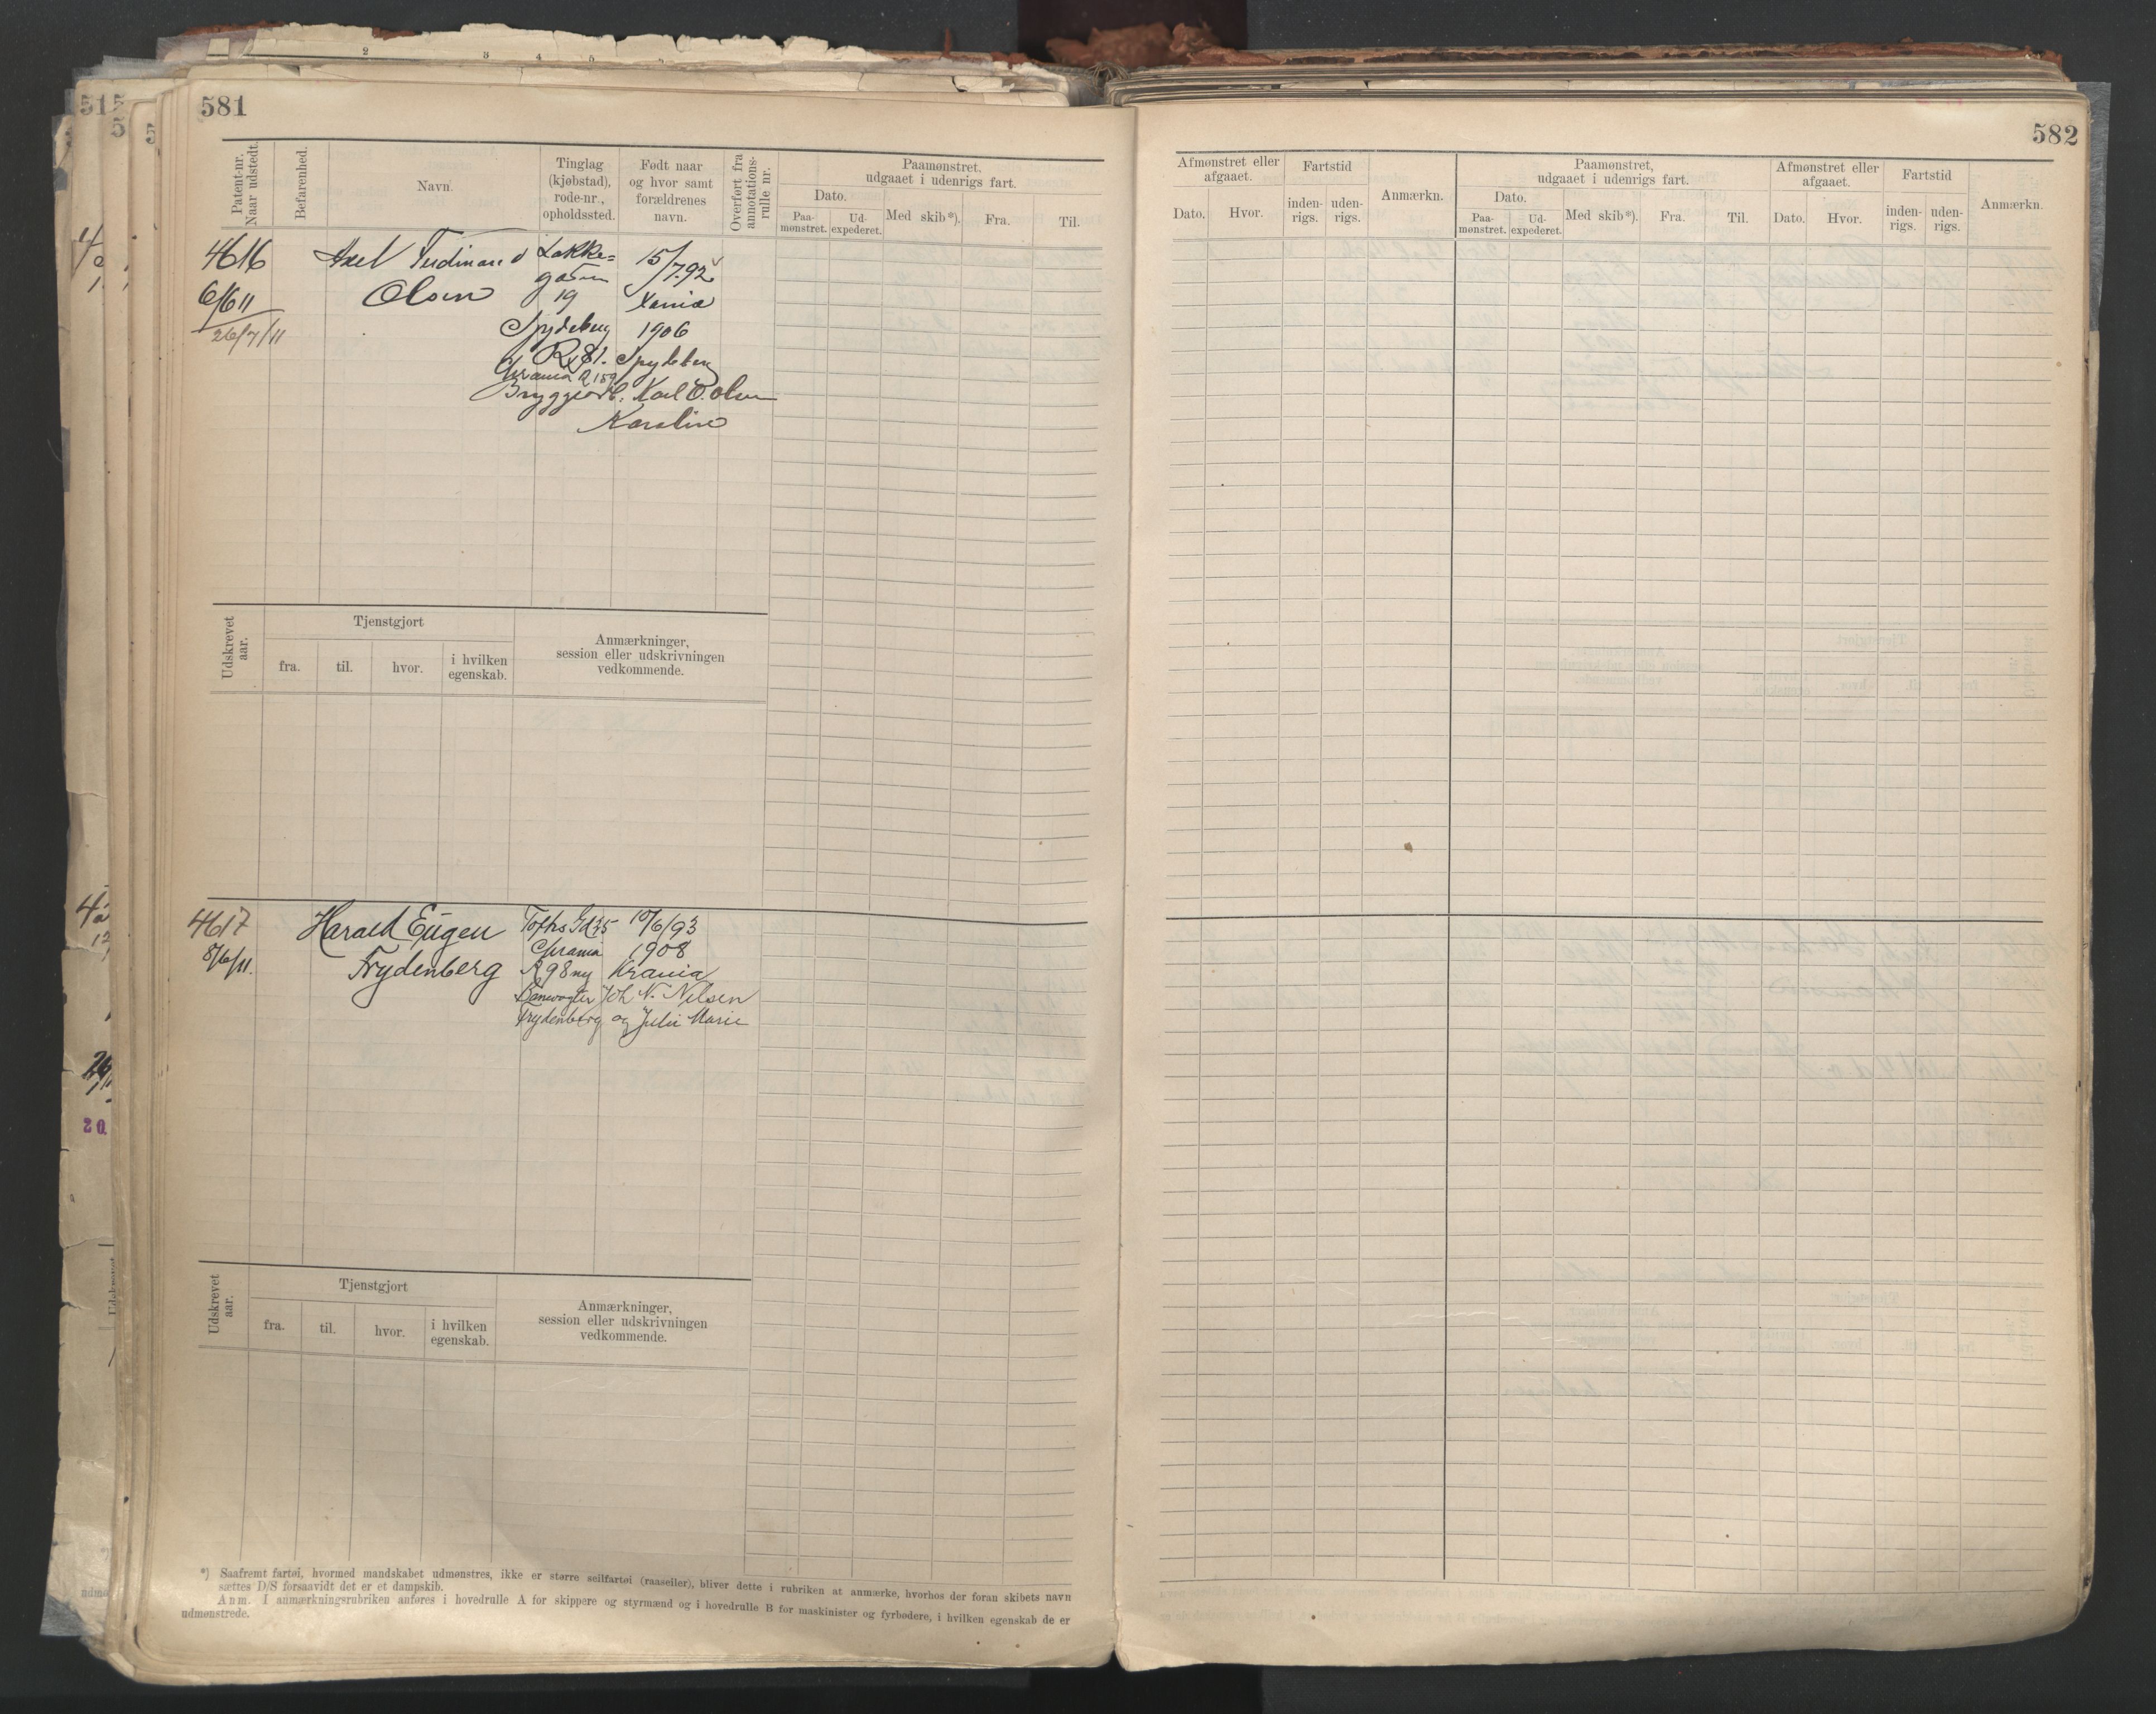 581
Patent-nr. Naar udstedt.
Befarenhed.
Navn.
Tinglag (kjøbstad), rode-nr., opholdssted.
Født naar og hvor samt forældrenes navn.
Overført fra annotations-rulle nr.
Paamønstret, udgaaet i udenrigs fart.
Dato.
Paa-mønstret.
Ud-expederet.
Med skib*).
Fra.
Til.
4616
6/6 11
26/7/11
Axel Ferdinand
Olsen
Lakke=
gaten
19
Spydeberg
R 81.
Chrania R 159
15/7.92
Xania
1906
Spydeberg
Bryggearb. Karl O. Olsen
Karoline
Udskrevet aar.
Tjenstgjort
fra.
til.
hvor.
i hvilken egenskab.
Anmærkninger,
session eller udskrivningen
vedkommende.
4617
8/6/11.
Harald Eugen
Frydenberg
Tofts Gd 35
Chrania
R 98 ny
10/6/93
1908
Krania
Banevogter Joh. N. Nilsen
Frydenberg og Julie Marie
Udskrevet aar.
Tjenstgjort
fra.
til.
hvor.
i hvilken egenskab.
Anmærkninger,
session eller udskrivningen
vedkommende.
*) Saafremt fartøi, hvormed mandskabet udmønstres, ikke er større seilfartøi (raaseiler), bliver dette i rubriken at anmærke, hvorhos der foran skibets navn
sættes D/S forsaavidt det er et dampskib.
Anm. I anmærkningsrubriken anføres i hovedrulle A for skippere og styrmænd og i hovedrulle B for maskinister og fyrbødere, i hvilken egenskab de er
udmønstrede.
582
Afmønstret eller afgaaet.
Dato.
Hvor.
Fartstid
inden-rigs.
uden-rigs.
Anmærkn.
Paamønstret,
udgaaet i udenrigs fart.
Dato.
Paa-mønstret.
Ud-expederet.
Med skib*).
Fra.
Til.
Afmønstret eller afgaaet.
Dato.
Hvor.
Fartstid
inden-rigs.
uden-rigs.
Anmærkn.